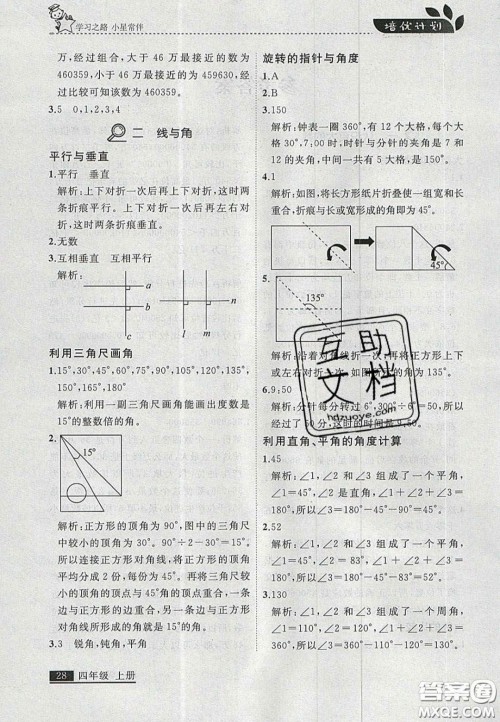 学习之路 小星常伴
培优计划
万，经过组合，大于 46 万最接近的数为
460359，小于 46 万最接近的为 459630，经
过比较可知该数为 460359。
3.5 0,1,2,3,4
二 线与角
平行与垂直
1.平行 垂直
解析：上下对折一次后再上下对折，这时两
条折痕平行。
解析：上下对折一次后再左右对折，这时两
条折痕垂直。
2.无数
3.互相垂直 互相平行
解析：
a
b
c
l
m
n
利用三角尺画角
1.15°,30°,45°,60°,75°,90°,105°,120°,135°,
150°,165°,180°
解析：利用一副三角尺画角能画出度数是
15°的整数倍的角。
2.
15°
解析：正方形的顶角为 90°，图中的三角尺
中较小的顶角为 30°。90°÷2－30°＝15°，
所以连接正方形对角线，将正方形的顶角
平均分成 2 份，每份为 45°。再将三角尺较
小的顶角的顶点与 45°的顶点重合，一条
边与正方形的边重合，另一条边与正方形
对角线所形成的角就是 15°的角。
3.3 锐角，钝角，平角
28 四年级 上册
旋转的指针与角度
1.A
2.B
3.150
解析：钟表一圈 360°，有 12 个大格，每大格
30°。下午 5:00 和 7:00 时，时针与分针的夹角是 7
和 12 的夹角，中间一共有 5 大格，是 150°。
4.1
解析：如图，将长方形纸片折叠使一组宽和长
重合，折痕与长或宽形成的角即为 45°。
45°
5.
135°
解析：沿着对角线折一次后，再将正方形上下
或左右对折一次，如图所示的角为 135°。
6.9:50
解析：分针每分钟转过 6°，300°÷6°＝50，所以
经过了 50 分，这时时间为 9:50。
利用直角、平角的角度计算
1.45
解析：∠1、∠2 和∠3 组成了一个平角，
∠1＝45°，∠2 是直角，∠1＋∠2＋∠3＝
180°，所以∠3＝180°－90°－45°＝45°。
2.52
解析：∠1、∠2 和∠3 组成了一个平角，
∠1＝90°，∠2＝38°，∠1＋∠2＋∠3＝
180°，所以∠3＝180°－90°－38°＝52°。
3.130
解析：∠1、∠2 和∠3 组成了一个周角，
∠1＝110°，∠2＝120°，∠1＋∠2＋∠3＝
360°，所以∠3＝360°－110°－120°＝130°。
互助
文档
hdzuoye.com
答案圈
MXQE.COM